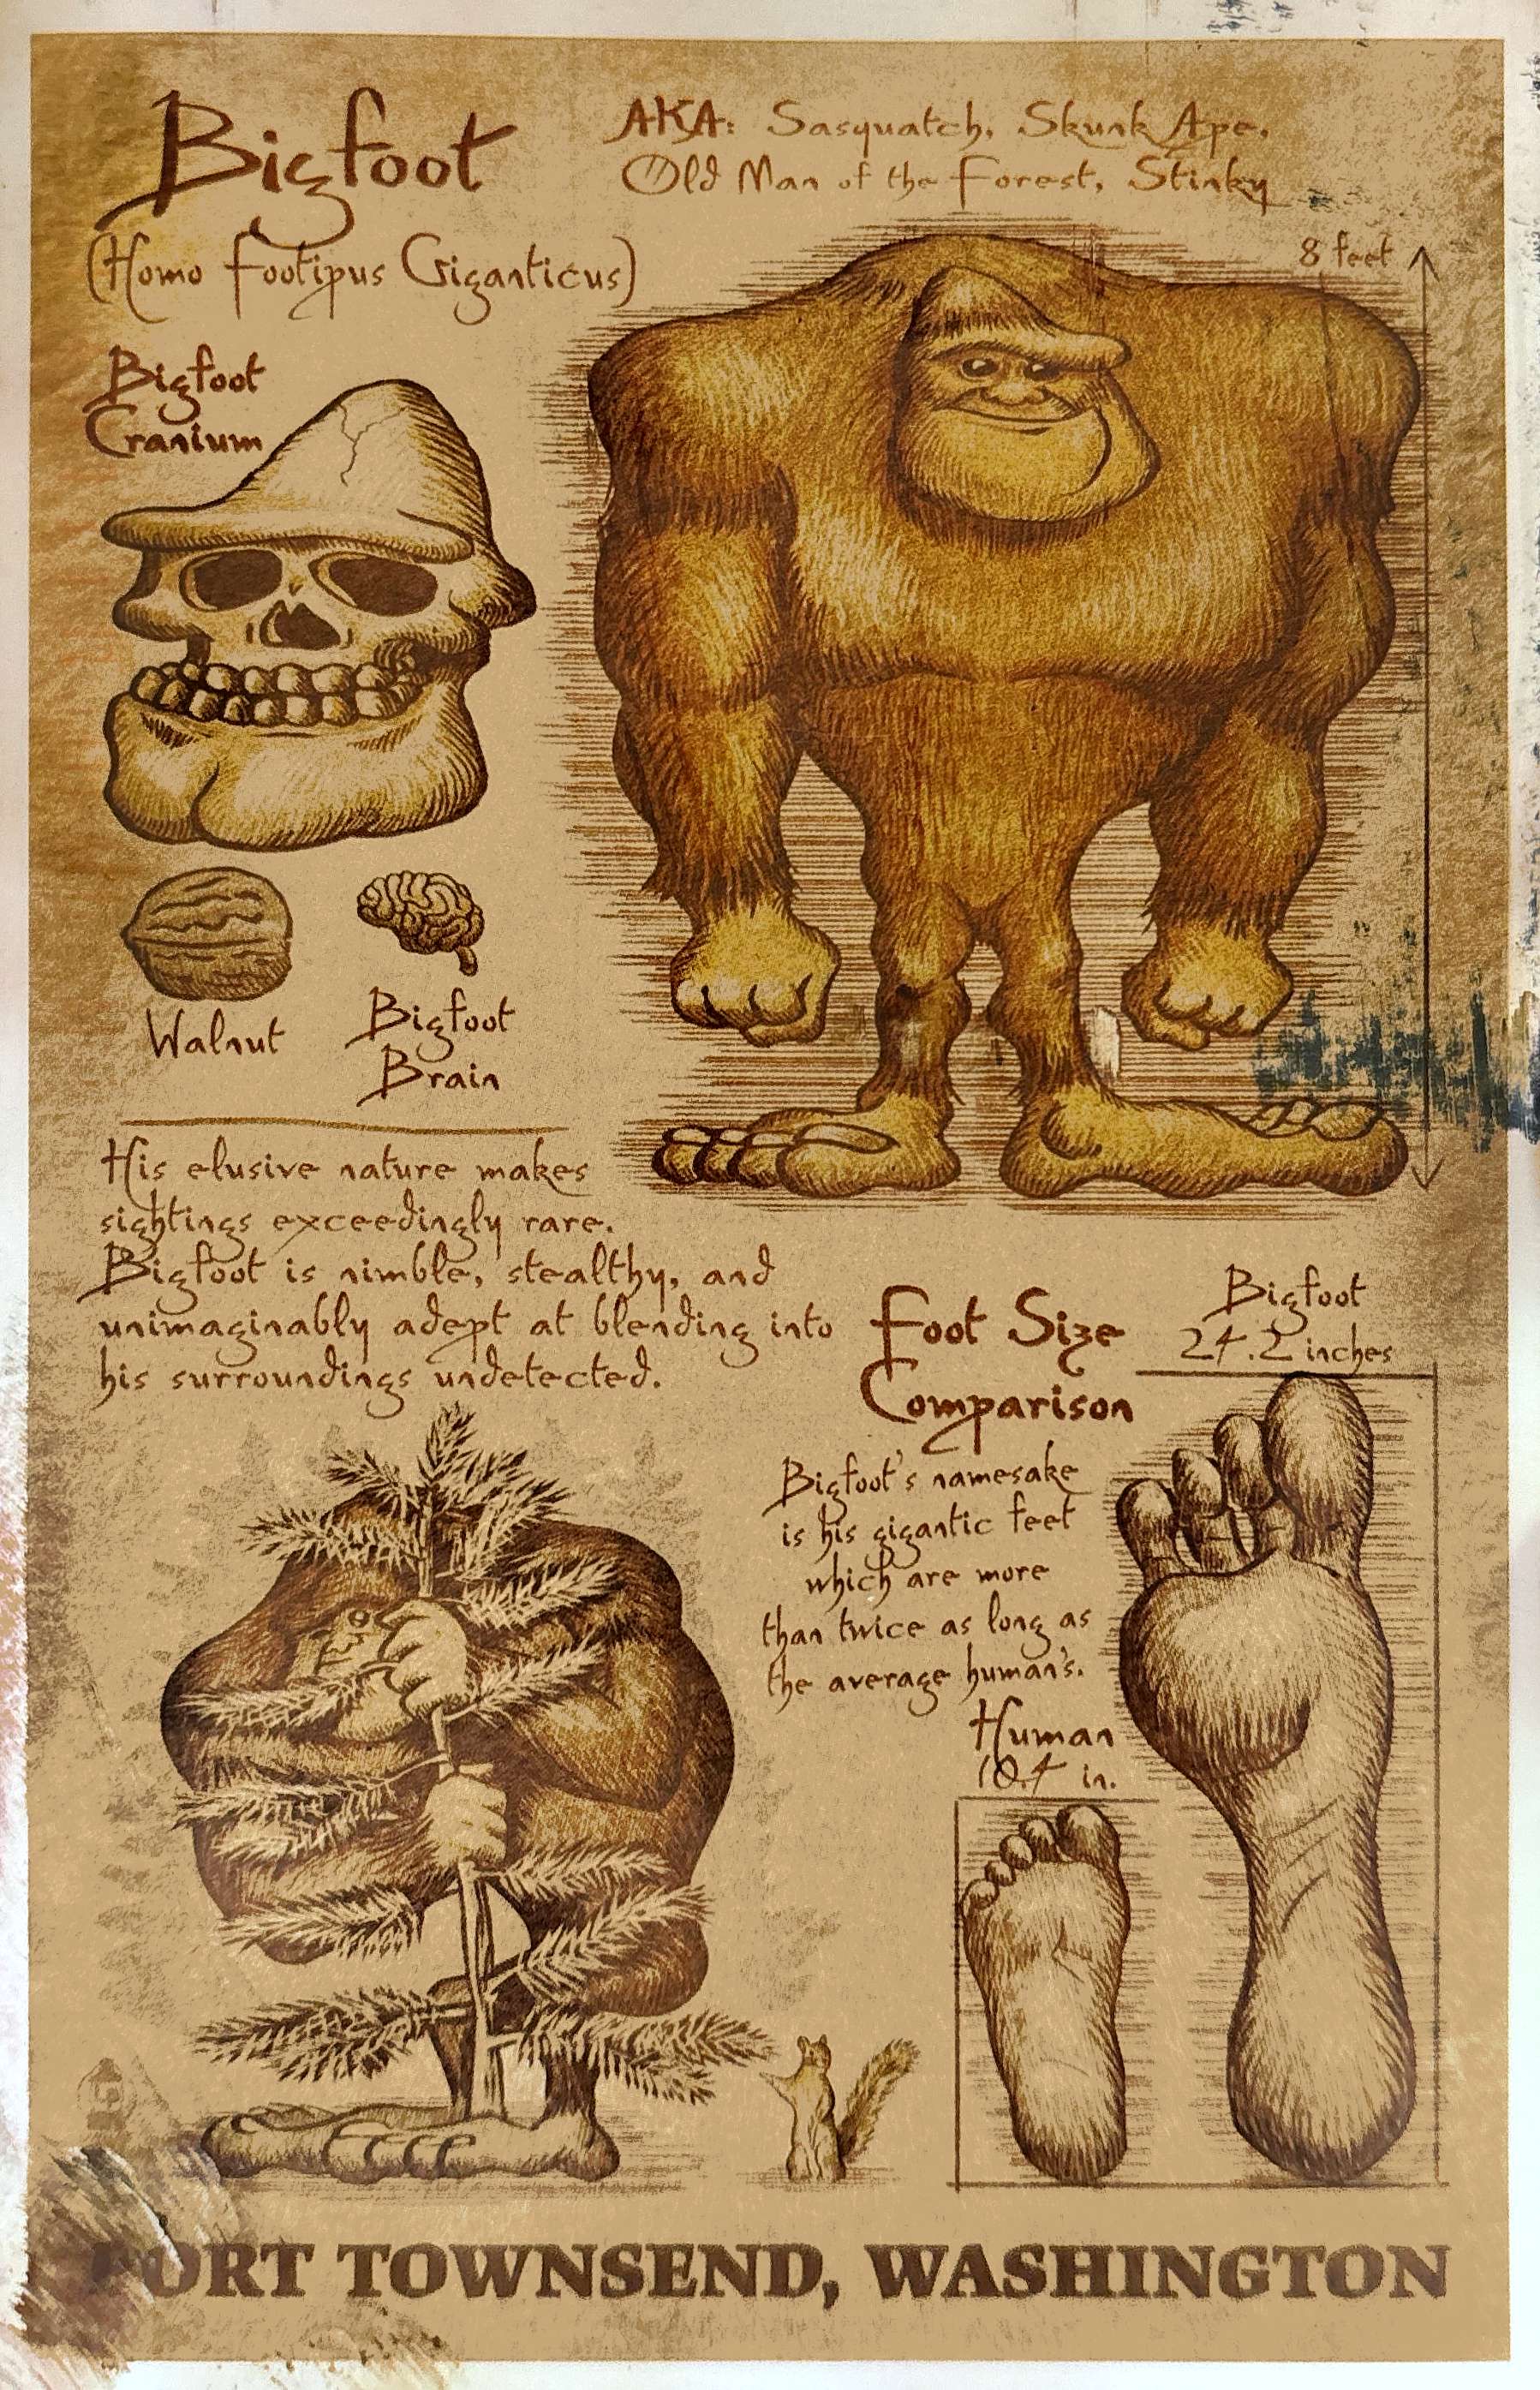 Bigfoot
(Homo Footipus Giganticus)
AKA: Sasquatch, Skunk Ape,
Old Man of the Forest, Stinky
8 feet
Bigfoot
Cranium
Walnut
Bigfoot
Brain
His elusive nature makes
sightings exceedingly rare.
Bigfoot is nimble, stealthy, and
unimaginably adept at blending into
his surroundings undetected.
Foot Size
Comparison
Bigfoot
24.2 inches
Bigfoot's namesake
is his gigantic feet
which are more
than twice as long as
the average human's.
Human
10.4 in.
PORT TOWNSEND, WASHINGTON